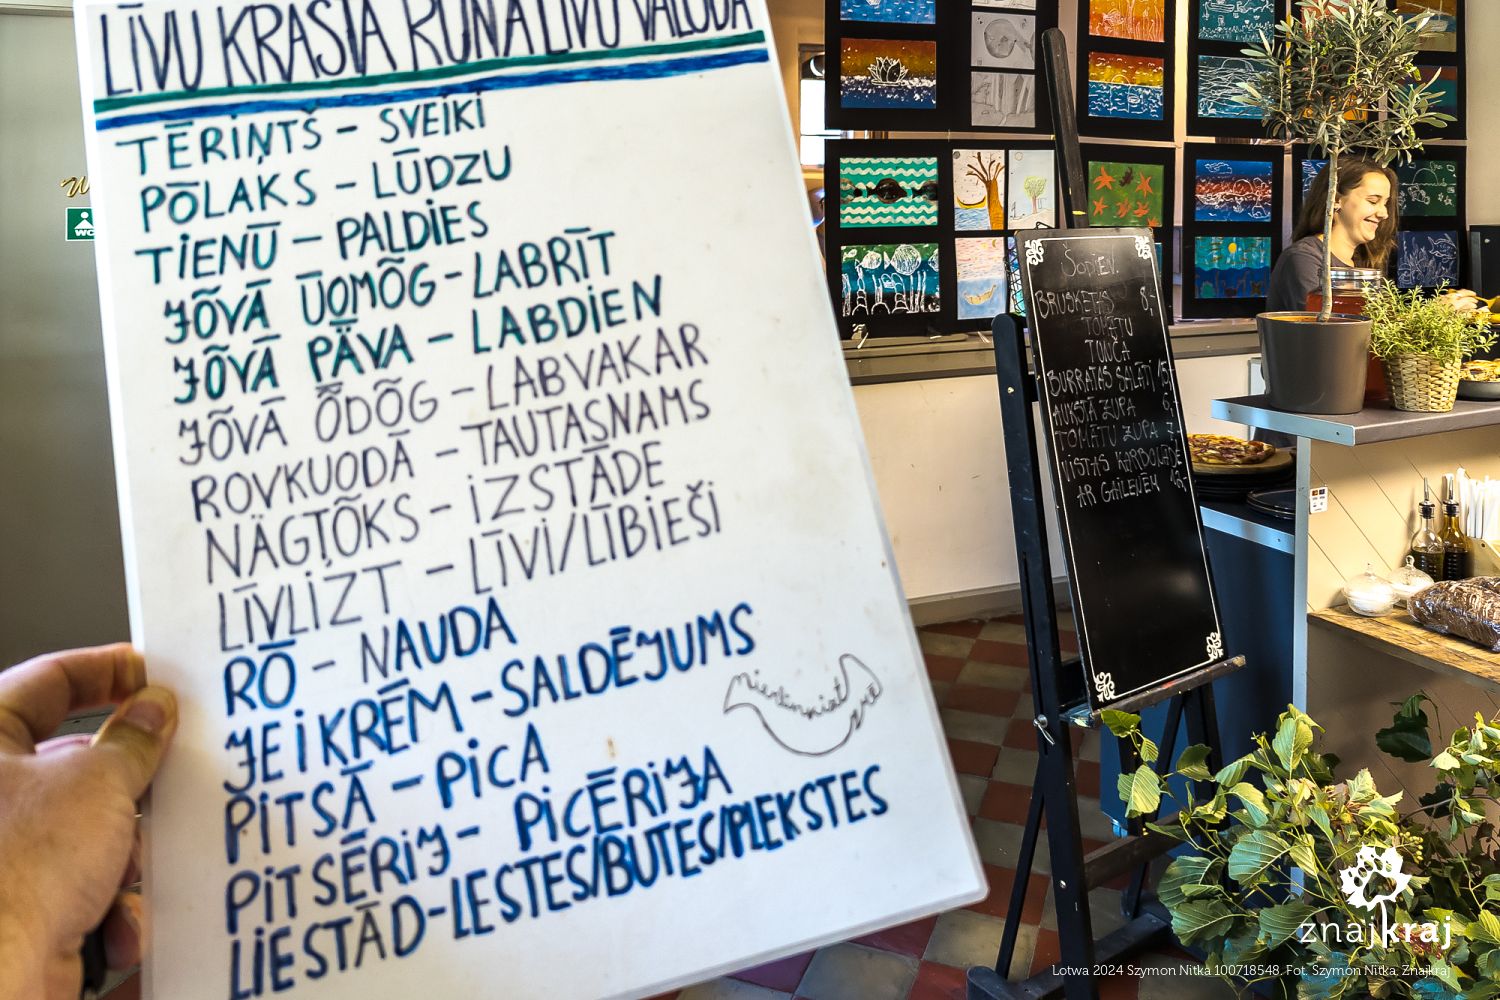 LĪVU KRASTA RUNĀ LĪVU VALODĀ
TĒRIŅTŠ – SVEIKI
PŌLAKS – LŪDZU
TIENŪ – PALDIES
JÕVĀ ŪOMÕG – LABRĪT
JÕVĀ PÄVA – LABDIEN
JÕVĀ ȬDÕG – LABVAKAR
ROVKUODĀ – TAUTASNAMS
NÄGṬÕKS – IZSTĀDE
LĪVLIZT – LĪVI/LĪBIEŠI
RŌ – NAUDA
JEIKRĒM – SALDĒJUMS
PITSĀ – PICA
PITSĒRIJ – PICĒRIJA
LIESTĀD – LESTES/BUTES/PLEKSTES
WC
ŠODIEN:
BRUSKETAS 8,-
TOMĀTU
TUNČA
BURRATAS SALĀTI 15,-
AUKSTĀ ZUPA 6,-
TOMĀTU ZUPA 7,-
VISTAS KARBONĀDE
AR GAILENĒM 12,-
znajkraj
Łotwa 2024 Szymon Nitka 100718548. Fot. Szymon Nitka. Znajkraj